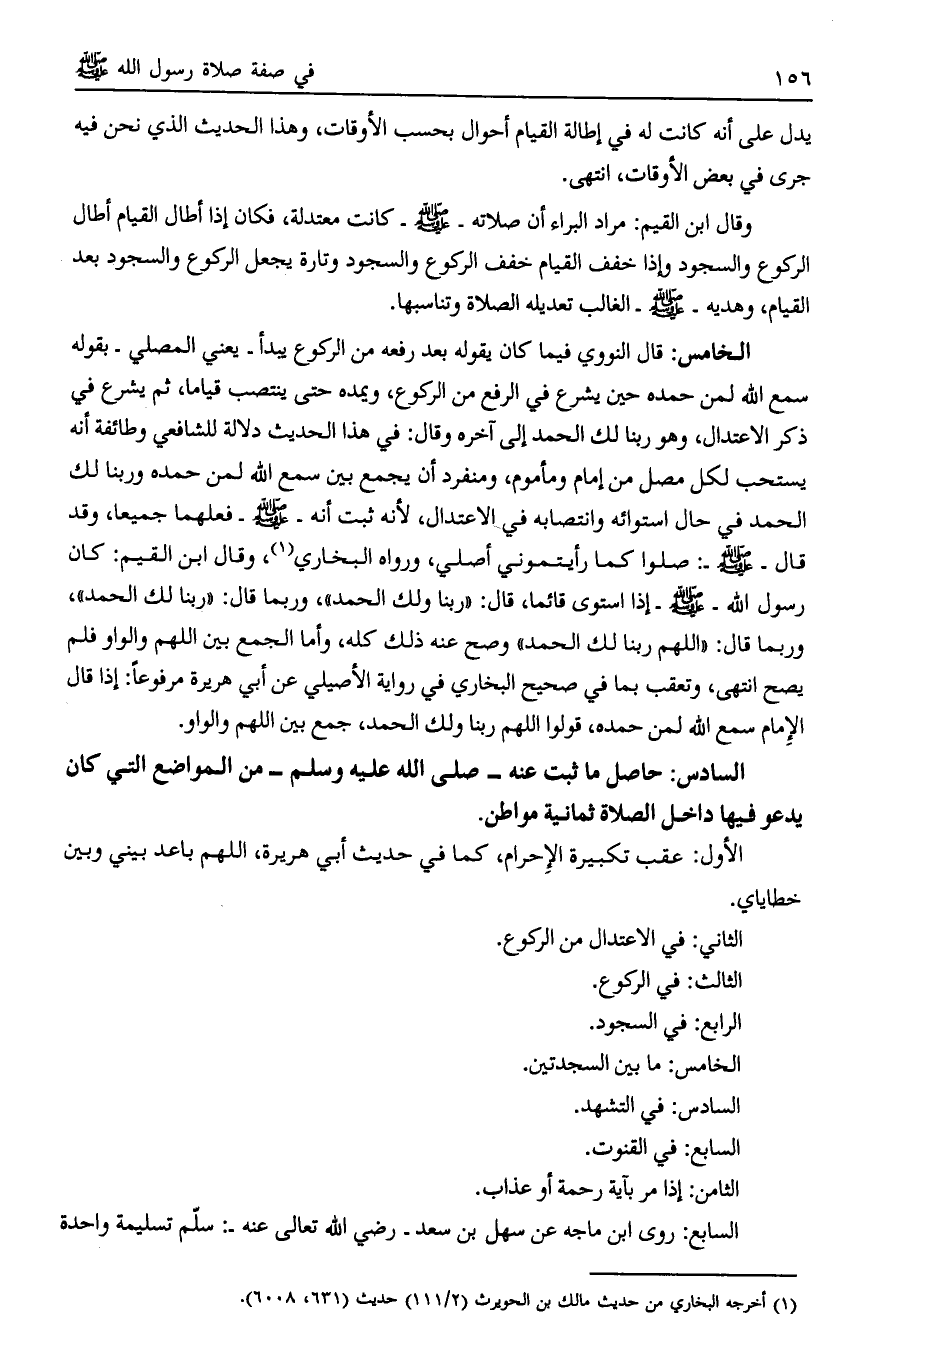 ١٥٦ في صفة صلاة رسول الله ﷺ
يدل على أنه كانت له في إطالة القيام أحوال بحسب الأوقات، وهذا الحديث الذي نحن فيه
جرى في بعض الأوقات، انتهى.
وقال ابن القيم: مراد البراء أن صلاته ـ ﷺ ـ كانت معتدلة، فكان إذا أطال القيام أطال
الركوع والسجود وإذا خفف القيام خفف الركوع والسجود وتارة يجعل الركوع والسجود بعد
القيام، وهديه ـ ﷺ ـ الغالب تعديله الصلاة وتناسبها.
الخامس: قال النووي فيما كان يقوله بعد رفعه من الركوع يبدأ ـ يعني المصلي ـ بقوله
سمع الله لمن حمده حين يشرع في الرفع من الركوع، ويمده حتى ينتصب قياما، ثم يشرع في
ذكر الاعتدال، وهو ربنا لك الحمد إلى آخره وقال: في هذا الحديث دلالة للشافعي وطائفة أنه
يستحب لكل مصل من إمام ومأموم، ومنفرد أن يجمع بين سمع الله لمن حمده وربنا لك
الحمد في حال استوائه وانتصابه في الاعتدال، لأنه ثبت أنه ـ ﷺ ـ فعلهما جميعا، وقد
قال ـ ﷺ ـ: صلوا كما رأيتموني أصلي، ورواه البخاري(١)، وقال ابن القيم: كان
رسول الله ـ ﷺ ـ إذا استوى قائما، قال: «ربنا ولك الحمد»، وربما قال: «ربنا لك الحمد»،
وربما قال: «اللهم ربنا لك الحمد» وصح عنه ذلك كله، وأما الجمع بين اللهم والواو فلم
يصح انتهى، وتعقب بما في صحيح البخاري في رواية الأصيلي عن أبي هريرة مرفوعاً: إذا قال
الإمام سمع الله لمن حمده، قولوا اللهم ربنا ولك الحمد، جمع بين اللهم والواو.
السادس: حاصل ما ثبت عنه ـ صلى الله عليه وسلم ـ من المواضع التي كان
يدعو فيها داخل الصلاة ثمانية مواطن.
الأول: عقب تكبيرة الإحرام، كما في حديث أبي هريرة، اللهم باعد بيني وبين
خطاياي.
الثاني: في الاعتدال من الركوع.
الثالث: في الركوع.
الرابع: في السجود.
الخامس: ما بين السجدتين.
السادس: في التشهد.
السابع: في القنوت.
الثامن: إذا مر بآية رحمة أو عذاب.
السابع: روى ابن ماجه عن سهل بن سعد ـ رضي الله تعالى عنه ـ: سلّم تسليمة واحدة
(١) أخرجه البخاري من حديث مالك بن الحويرث (١١١/٢) حديث (٦٣١، ٦٠٠٨).